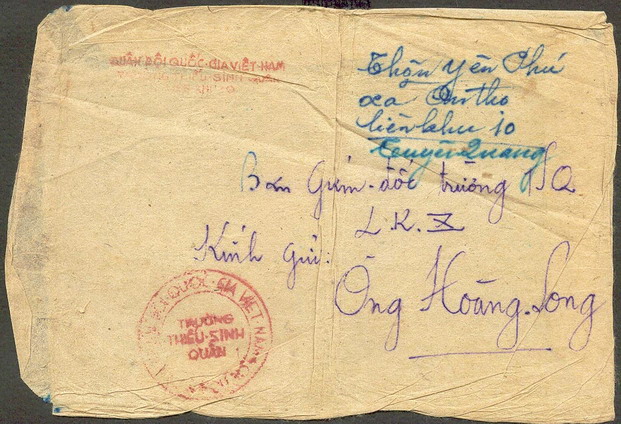 QUÂN ĐỘI QUỐC GIA VIỆT NAM
Thôn Yên Phú
liên khu 10
Tuyên Quang
Ban Giám-đốc trường
L.K.X
Kính gửi:
Ông Hoàng-Long
QUỐC GIA VIỆT NAM
TRƯỜNG
THIẾU-SINH
QUÂN